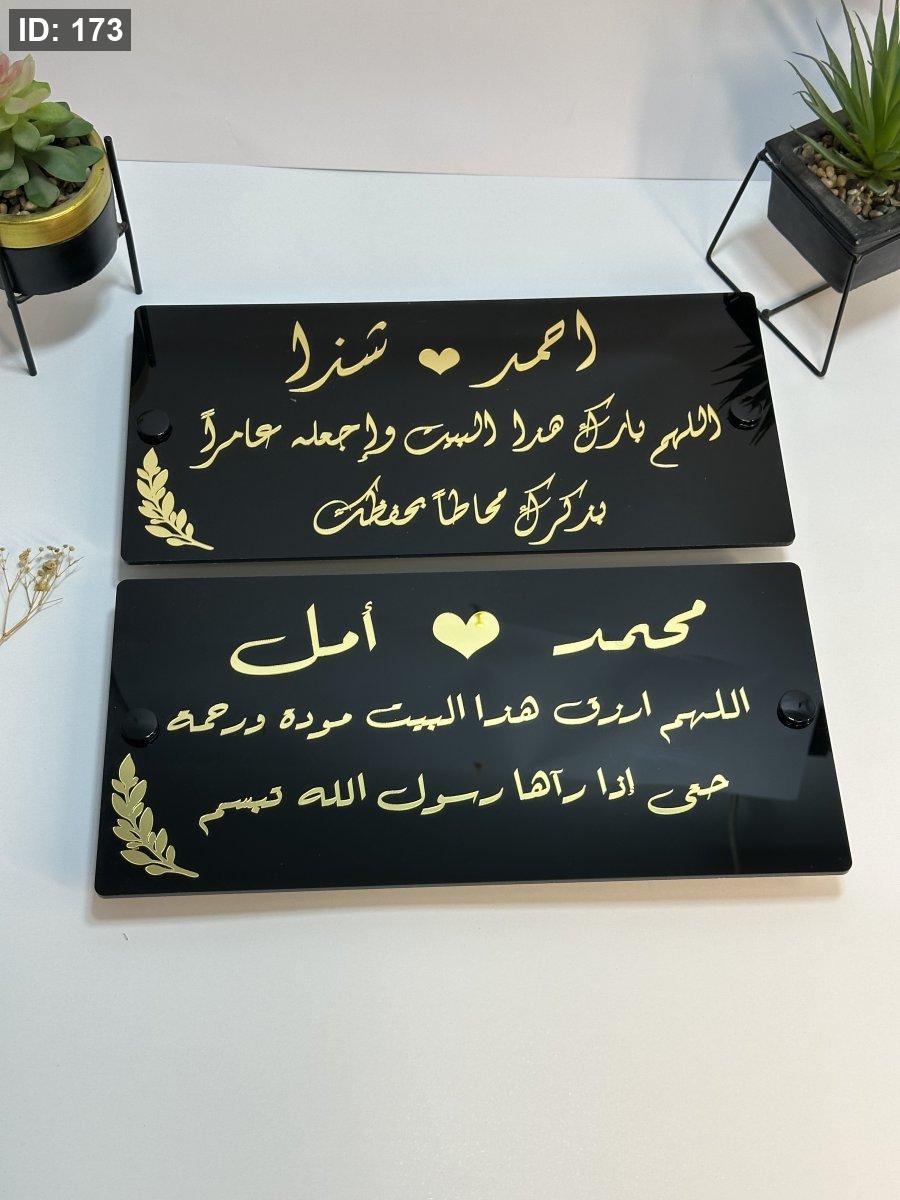 ID: 173
احمد ♥ شذا
اللهم بارك هذا البيت وإجعله عامراً
بذكرك محاطاً بحفظك
محمد ♥ أمل
اللهم ارزق هذا البيت مودة ورحمة
حتى إذا رآها رسول الله تبسم